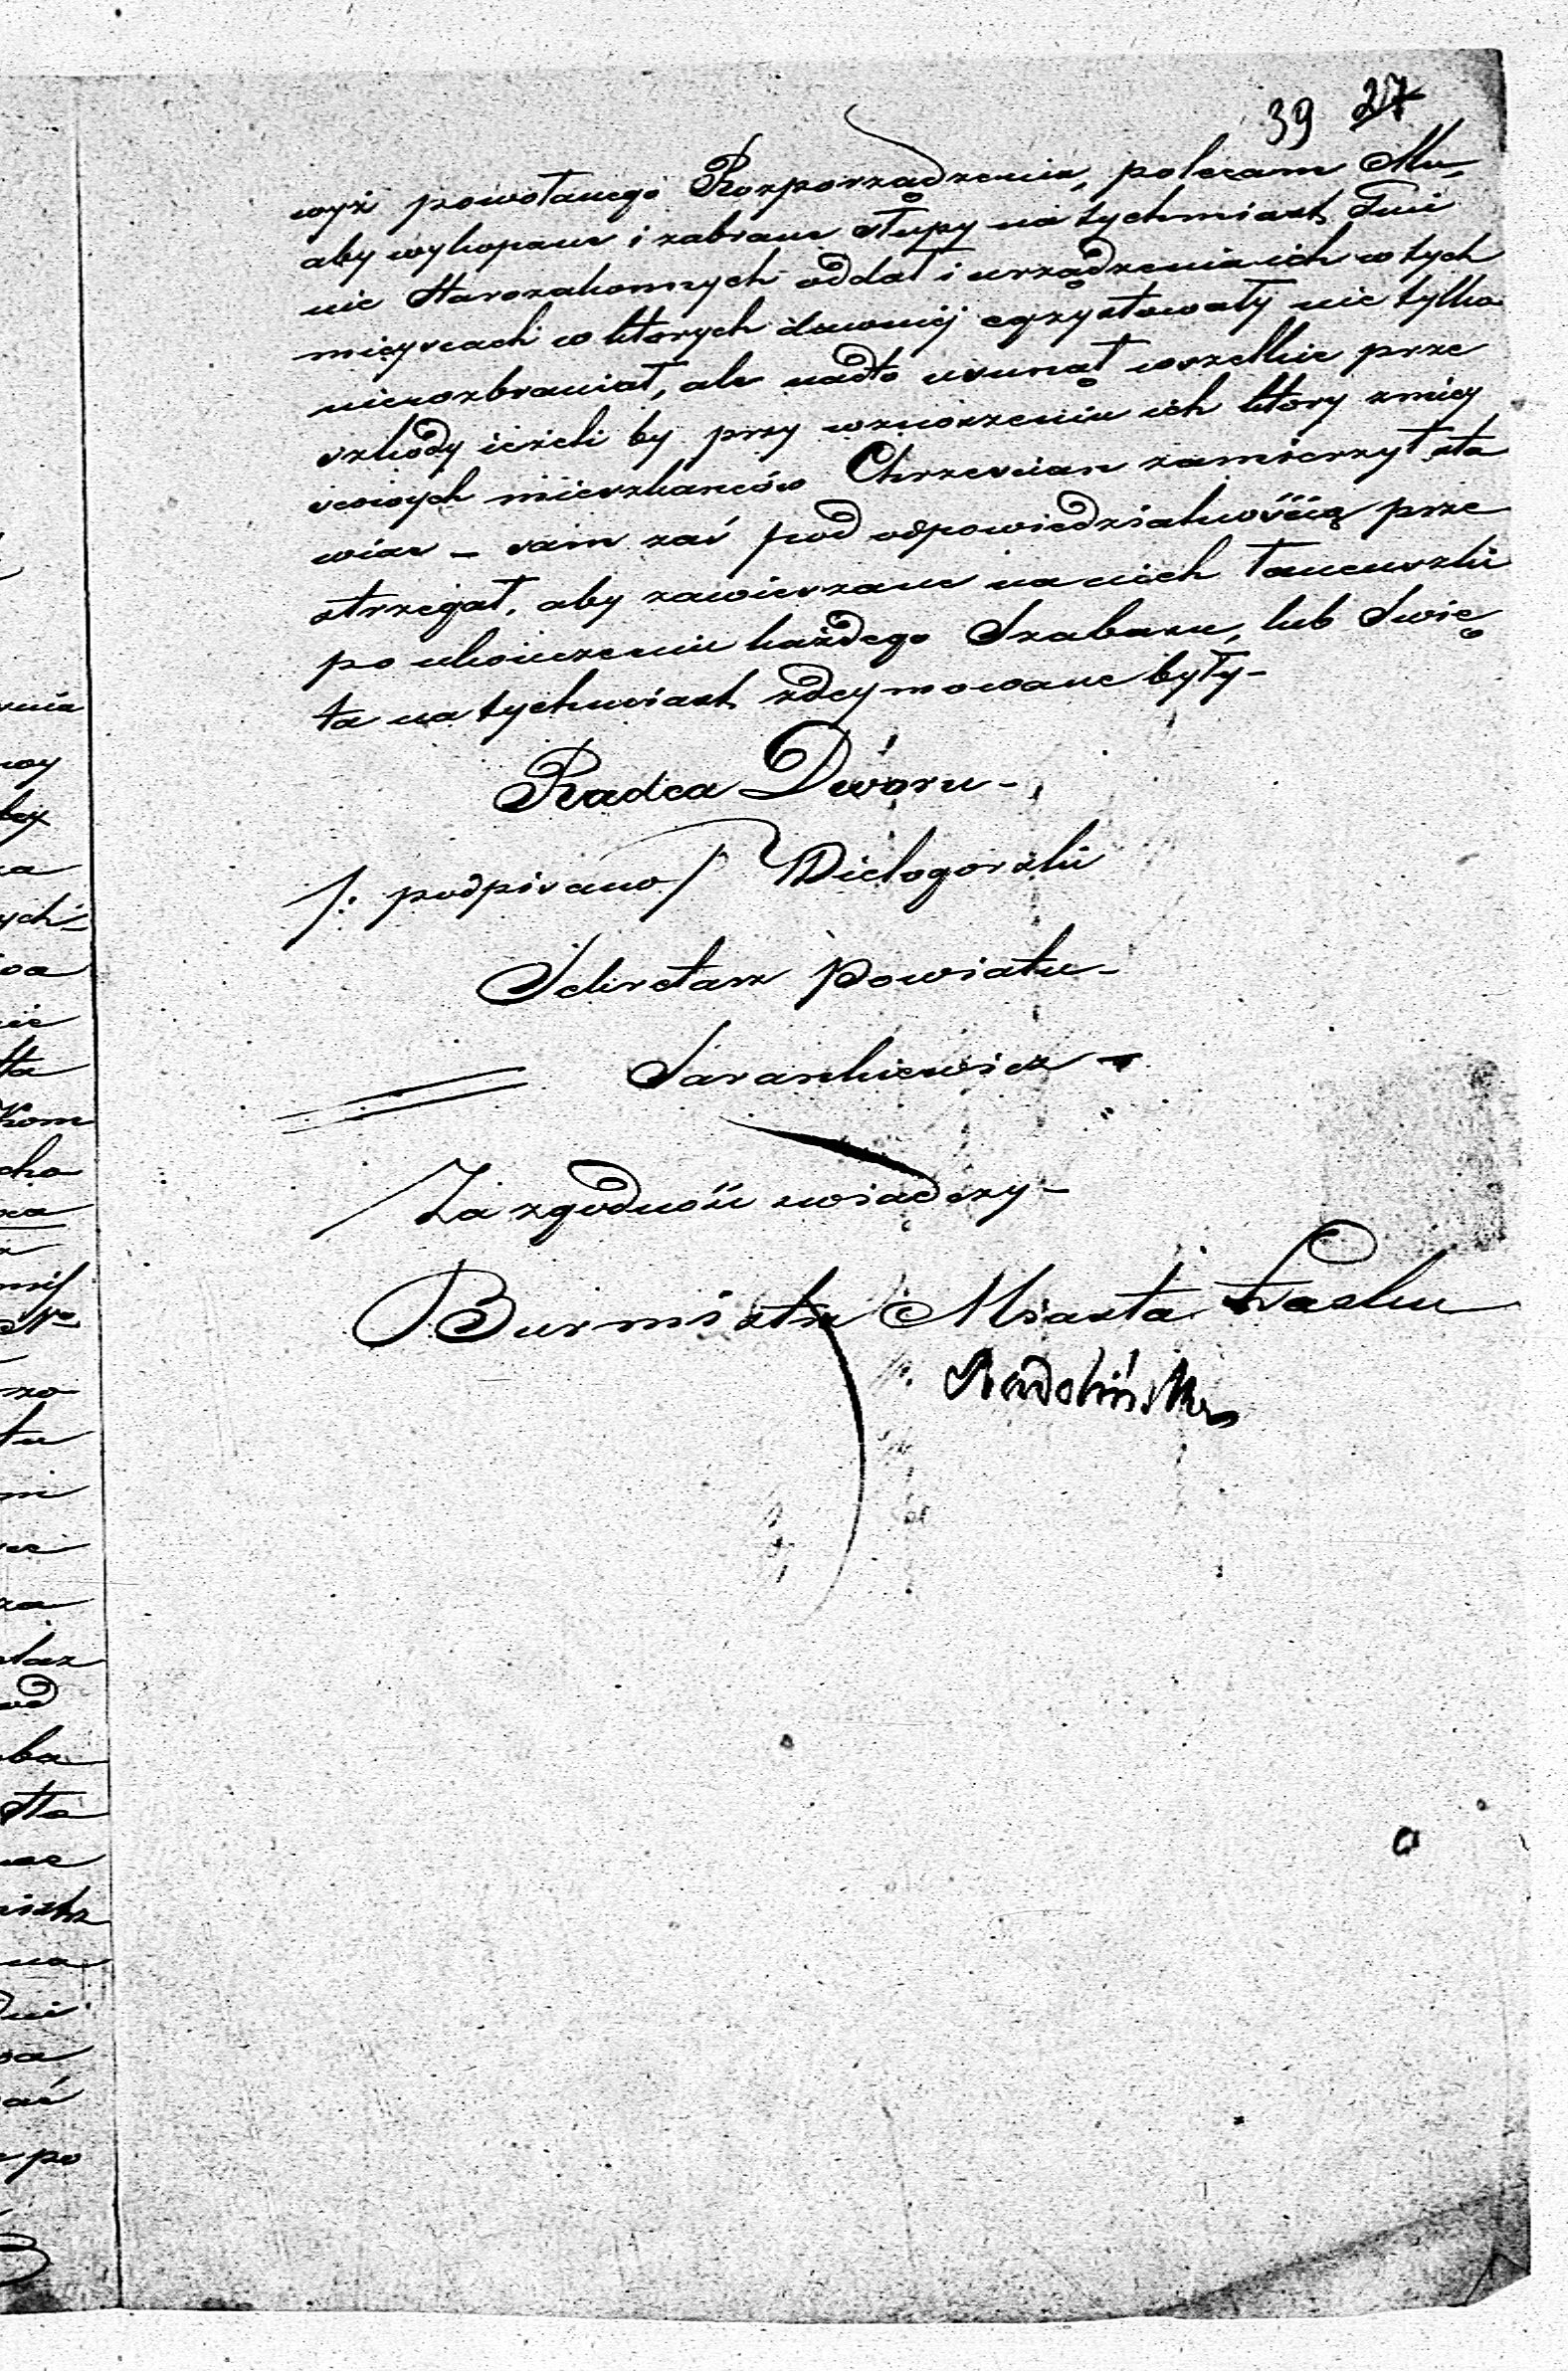 39 27
wyż powołanego Rozporządzenia, polecam Mu,
aby wykopane i zabrane słupy natychmiast Gmi
nie Starozakonnych oddał i urządzenia ich w tych
mieyscach w których dawniej egzystowały nie tylko
niewzbraniał, ale nadto usunął wszelkie prze
szkody ieżeli by przy wznoszeniu ich który z miey
scowych mieszkanców Chrzescian zamierzył sta
wiac – sam zaś pod odpowiedzialnością prze
strzegał, aby zawieszane na nich łancuszki
po ukończeniu każdego Szabasu, lub Swię
ta natychmiast zdeymowane były –
Radca Dworu –
/: podpisano / Wielogorski
Sekretarz Powiatu –
Sarankiewicz –
Za zgodność swiadczy –
Burmistrz Miasta Łasku
Radoliński